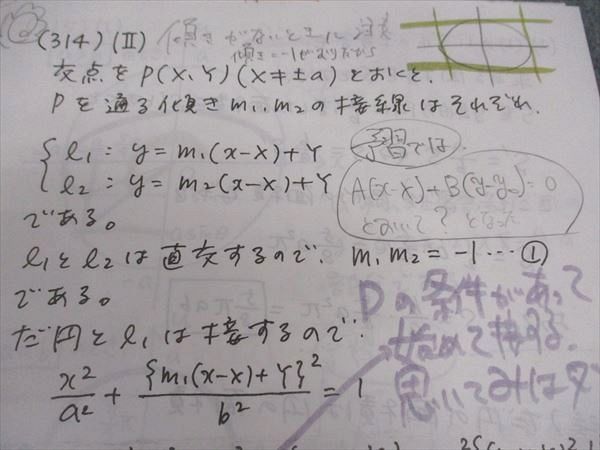 (314)(Ⅱ) 傾きがないときに注意
傾き=-1がありだから
交点をP(X、Y)(X≠±a)とおくと、
Pを通る傾きm₁、m₂の接線はそれぞれ、
l₁: y=m₁(x-X)+Y
l₂: y=m₂(x-X)+Y
である。
予習では、
A(x-X)+B(y-y₀)=0
とおいて?となった
l₁とl₂は直交するので、m₁m₂=-1…①
である。
だ円とl₁は接するので、
x²/a²+{m₁(x-X)+Y}²/b²=1
Pの条件があって
始めて接する。